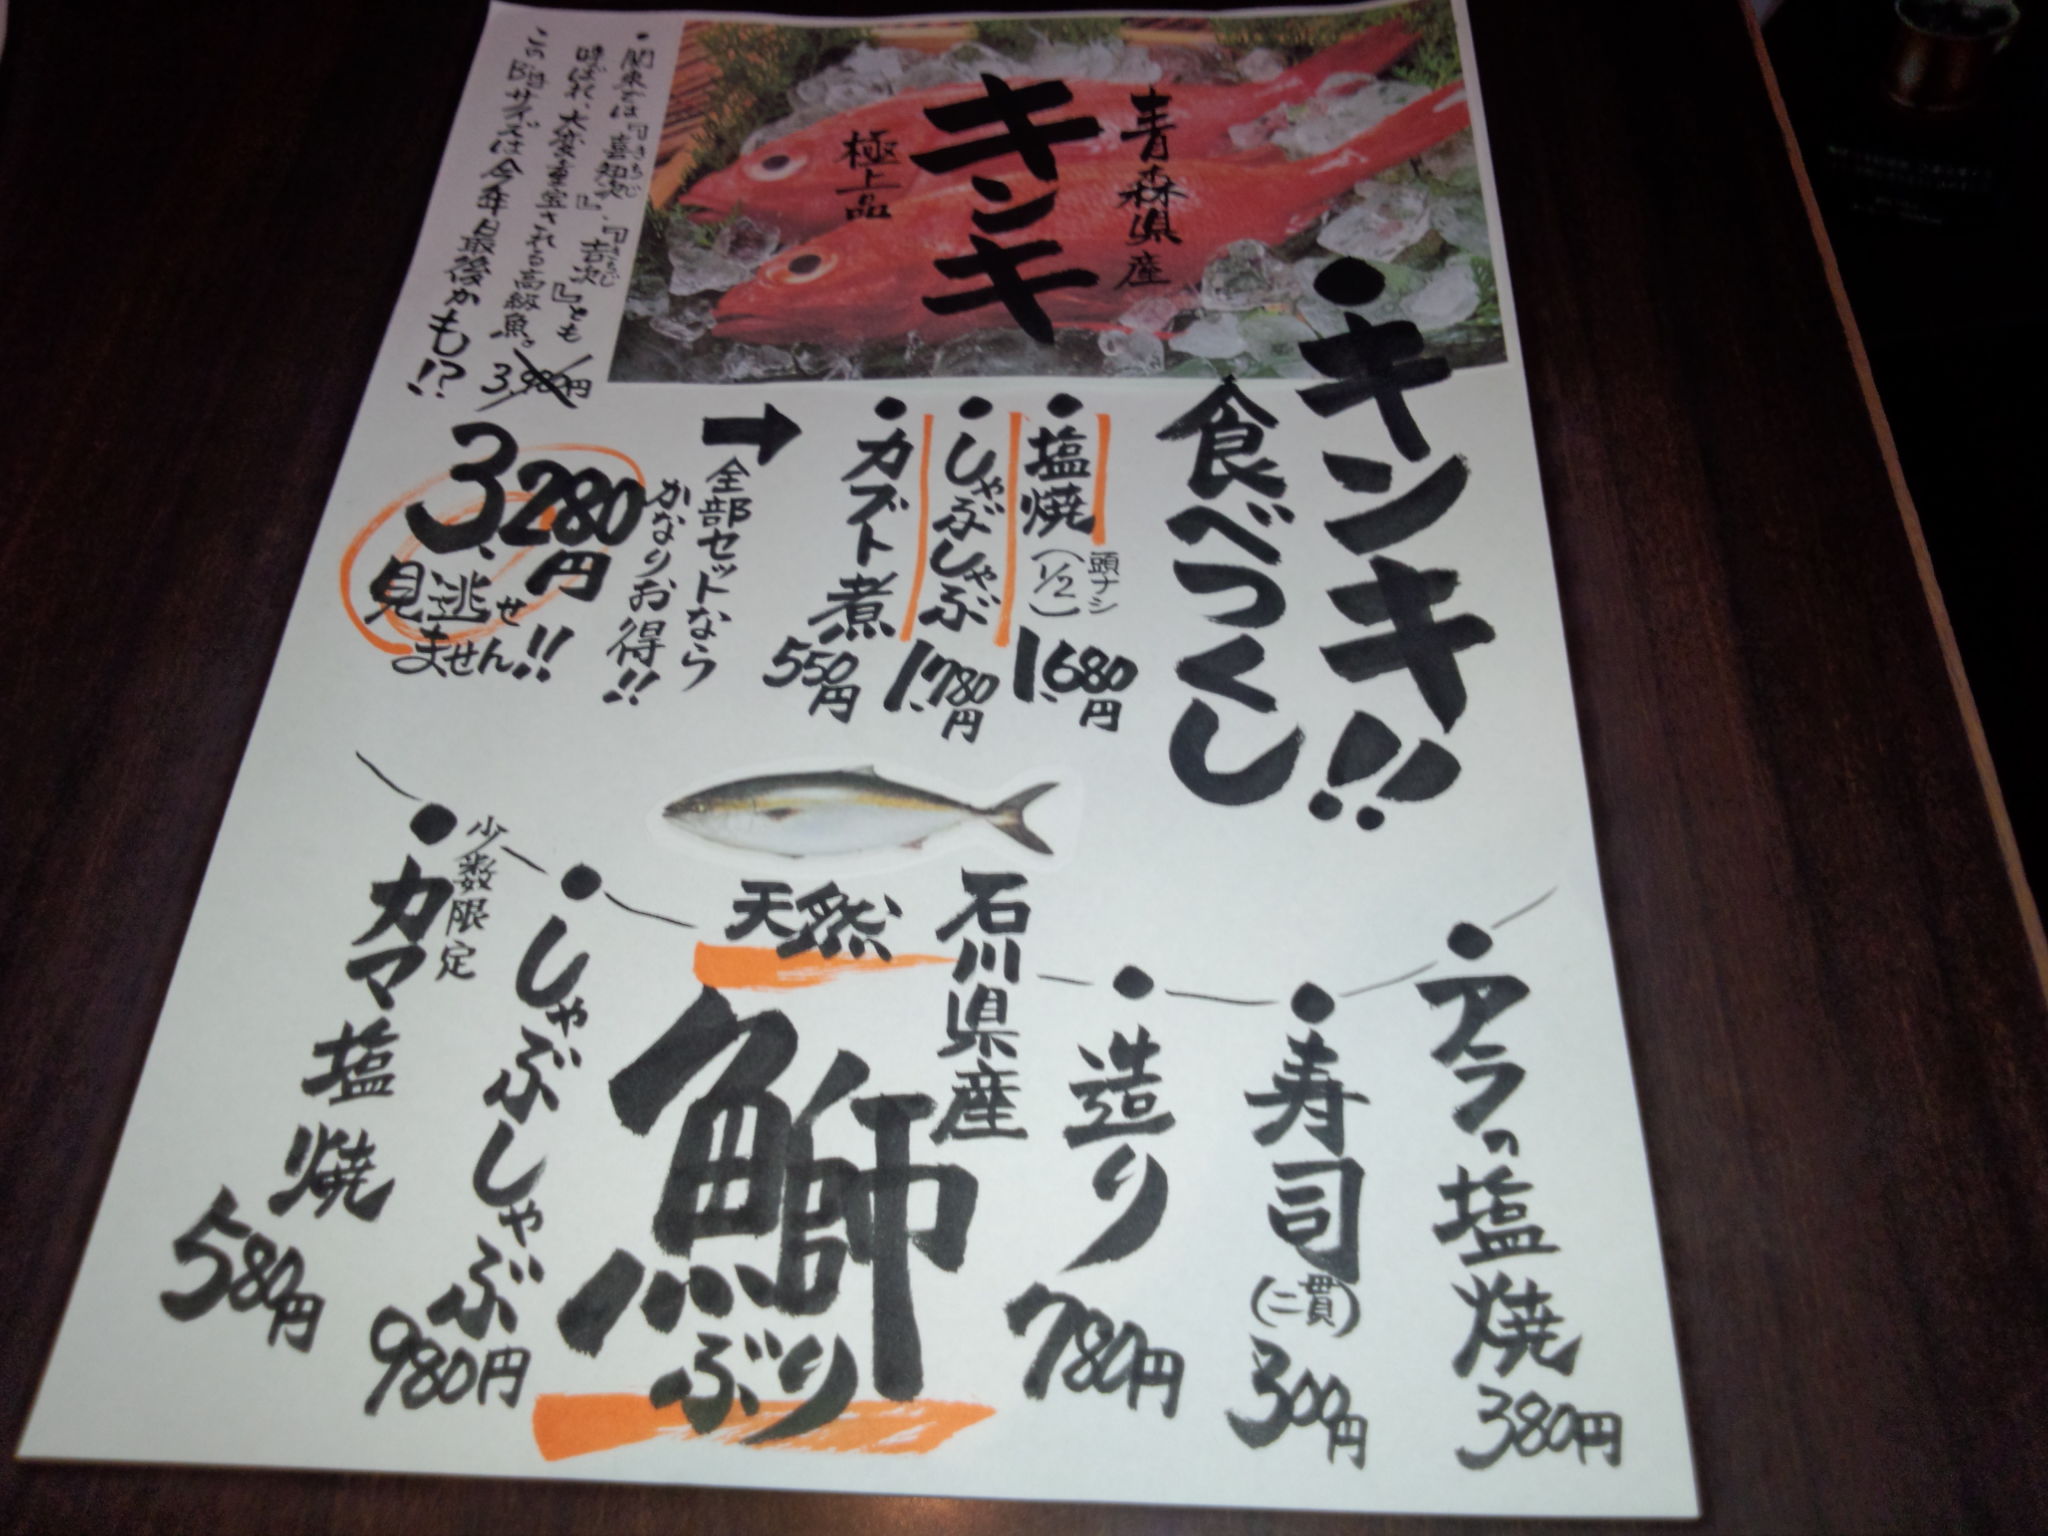 青森県産
キンキ
極上品
・関東では『喜知次』、『吉次』とも
呼ばれ、大変重宝される高級魚。
このBigサイズは今年最後かも!?
・キンキ!!
食べつくし
・塩焼(1/2)頭ナシ 1,680円
・しゃぶしゃぶ 1,780円
・カブト煮 550円
➡全部セットなら
かなりお得!!
3,980円
3,280円
見逃せ
ません!!
・アラの塩焼 380円
・寿司(二貫) 300円
・造り 780円
石川県産
天然
鰤
ぶり
・しゃぶしゃぶ 980円
少数限定
・カマ塩焼 580円